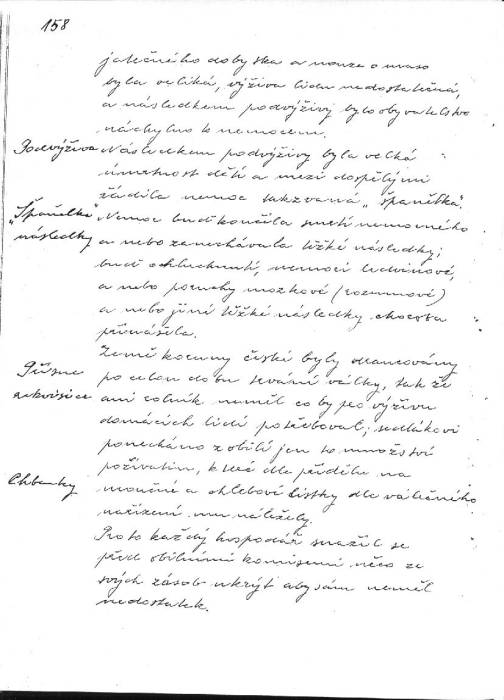 158
jatečného dobytka a nouze o maso
byla veliká, výživa lidu nedostatečná,
a následkem podvýživy bylo obyvatelstvo
náchylno k nemocem.
Podvýživa Následkem podvýživy byla velká
úmrtnost dětí a mezi dospělými
řádila nemoc takzvaná „španělka“.
„Španělka“ Nemoc buď končila smrtí nemocného
následky a nebo zanechávala těžké následky;
buď ohluchnutí, nemoci ledvinové,
a nebo poruchy mozkové (rozumové)
a nebo jiné těžké následky choroba
přinášela.
Země koruny české byly drancovány
Přísné po celou dobu trvání války, tak že
rekvisice ani rolník neměl co by pro výživu
domácích lidí potřeboval; sedlákovi
ponecháno z obilí jen to množství
poživatin, které dle přídělu na
Chlebenky moučné a chlebové lístky dle válečného
nařízení mu náležely.
Proto každý hospodář snažil se
před obilními komisemi něco ze
svých zásob ukrýt aby sám neměl
nedostatek.